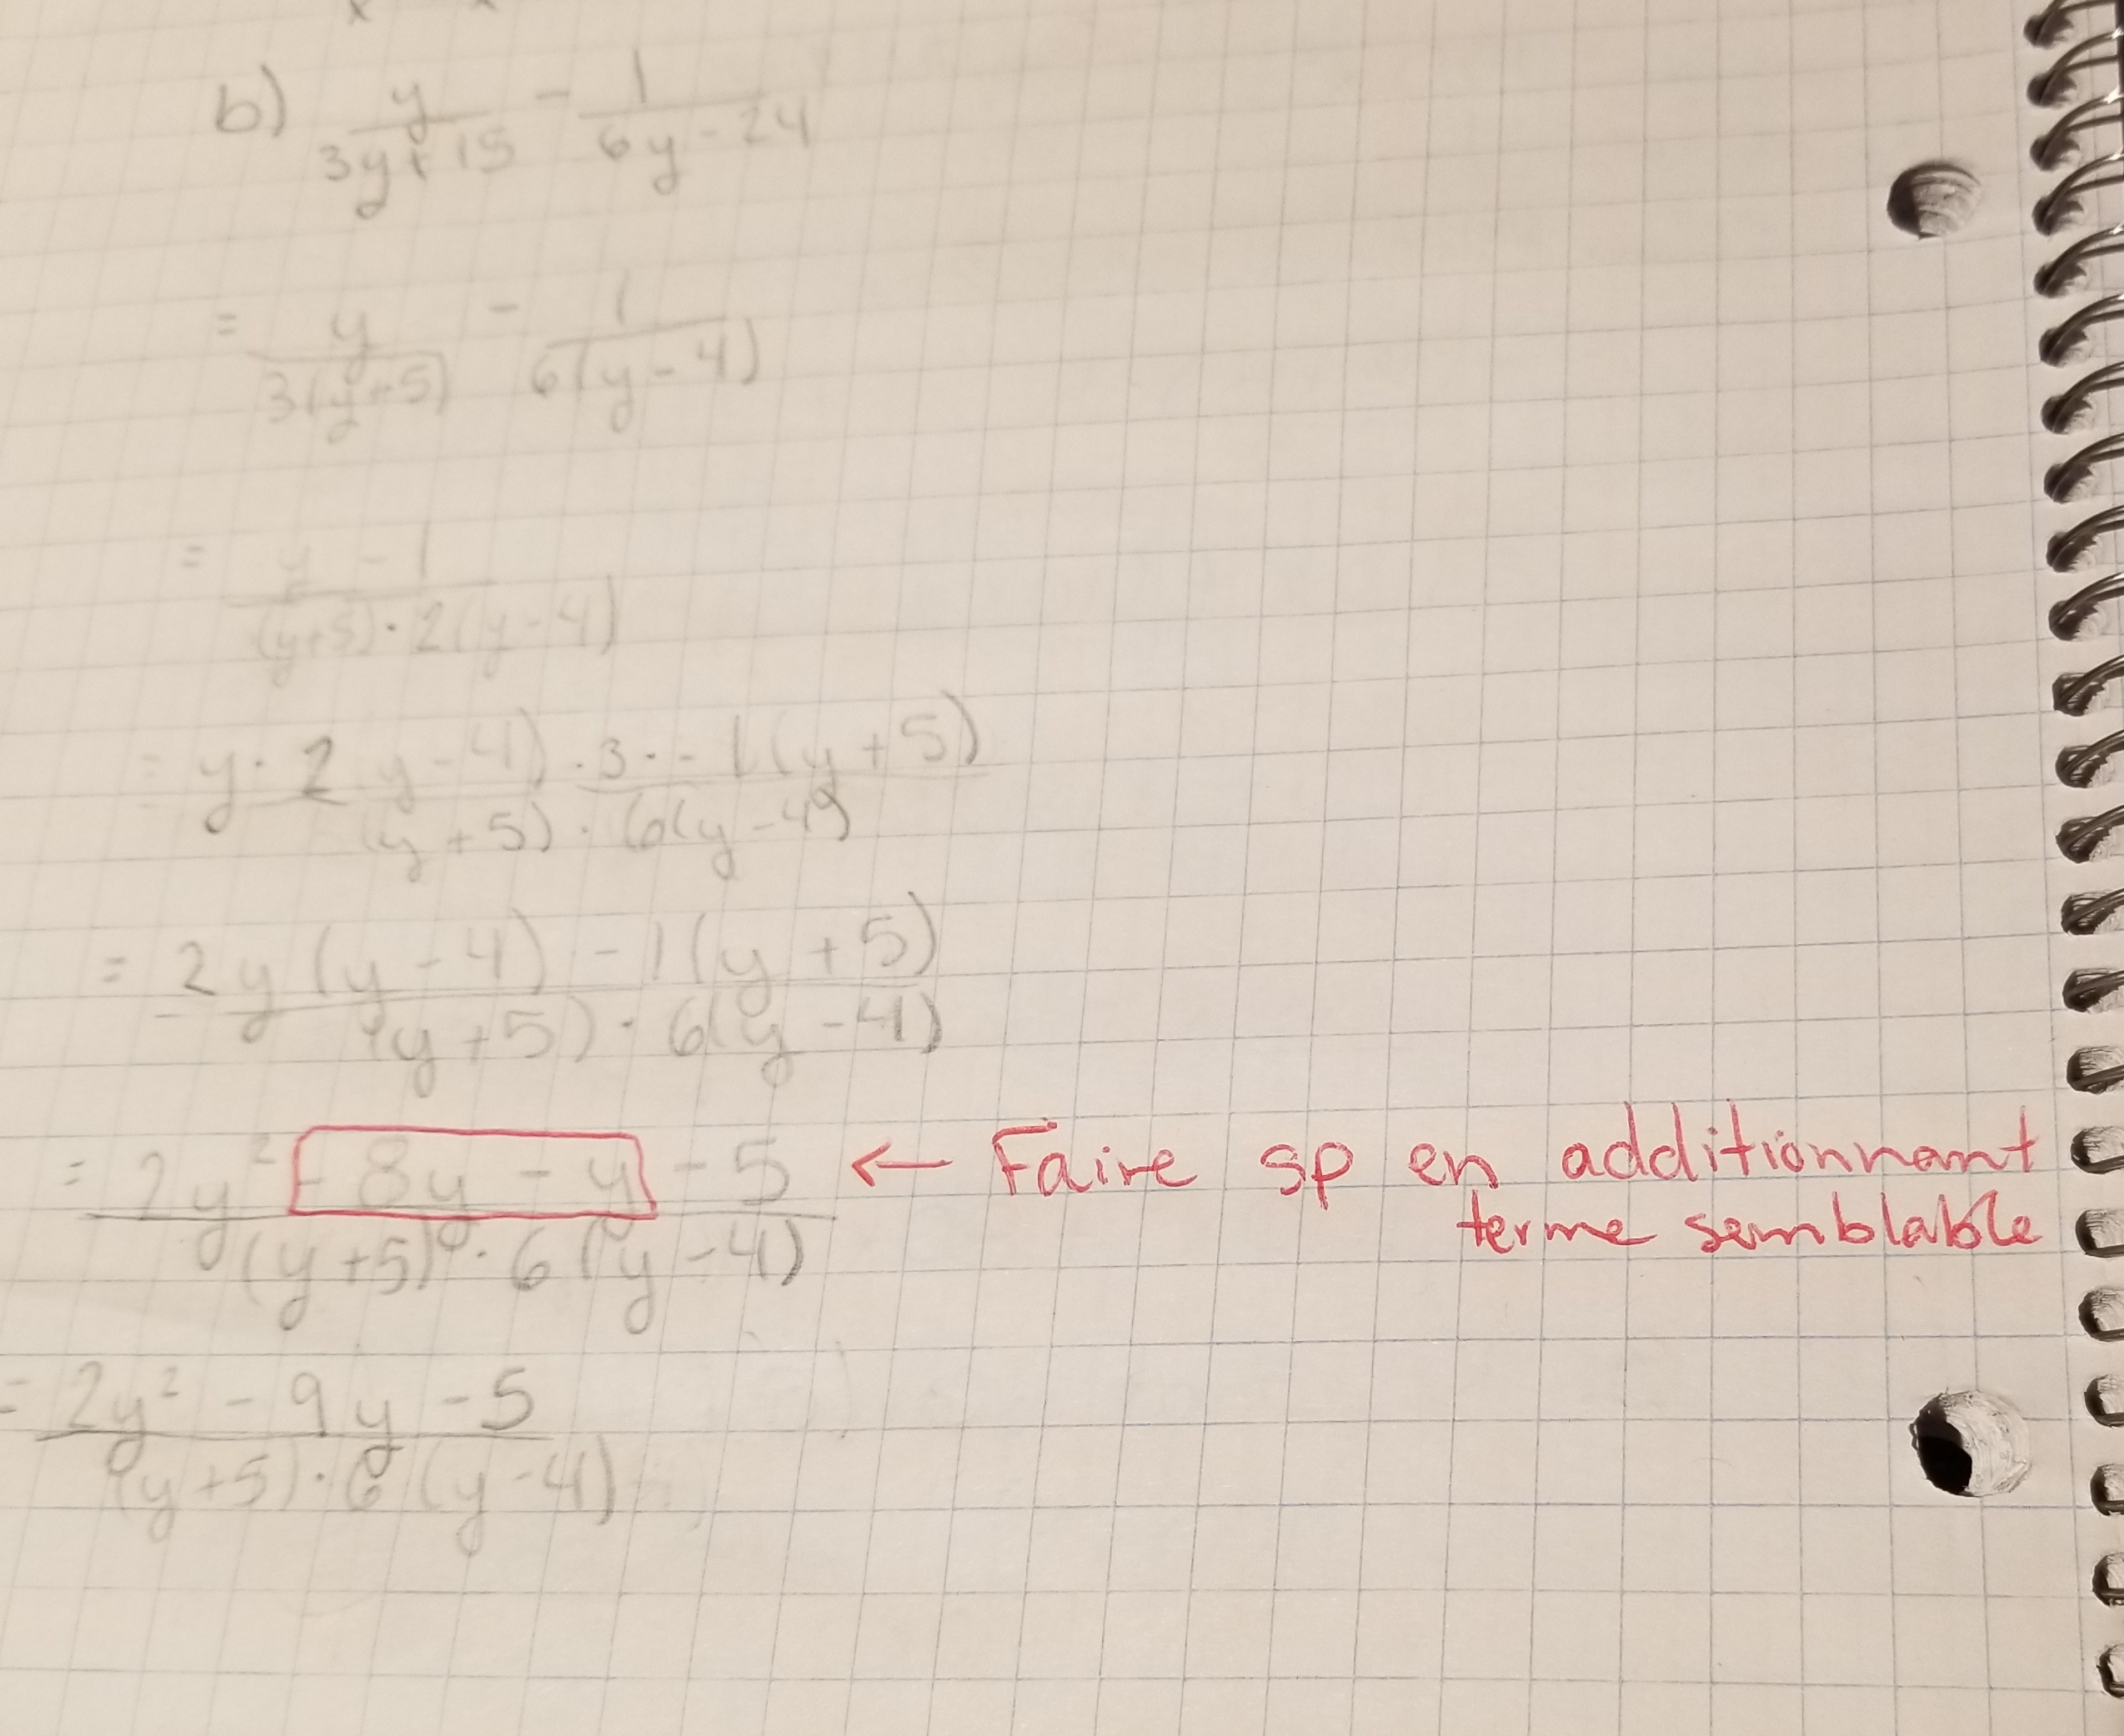 b) y/(3y+15) - 1/(6y-24)
= y/(3(y+5)) - 1/(6(y-4))
= y - 1/((y+5)·2(y-4))
= y·2 y-4)·3·-1(y+5)/(y+5)·6(y-4)
= 2y(y-4)-1(y+5)/(y+5)·6(y-4)
= 2y²-8y-y-5/(y+5)·6(y-4) ← Faire sp en additionnant
terme semblable
= 2y²-9y-5/(y+5)·6(y-4)